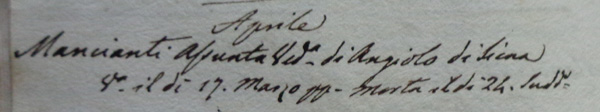 Aprile
Mancianti Assunta Ved.ª di Angiolo di Siena
V.ª il dì 17. Marzo pp. morta il dì 24. sudd.º